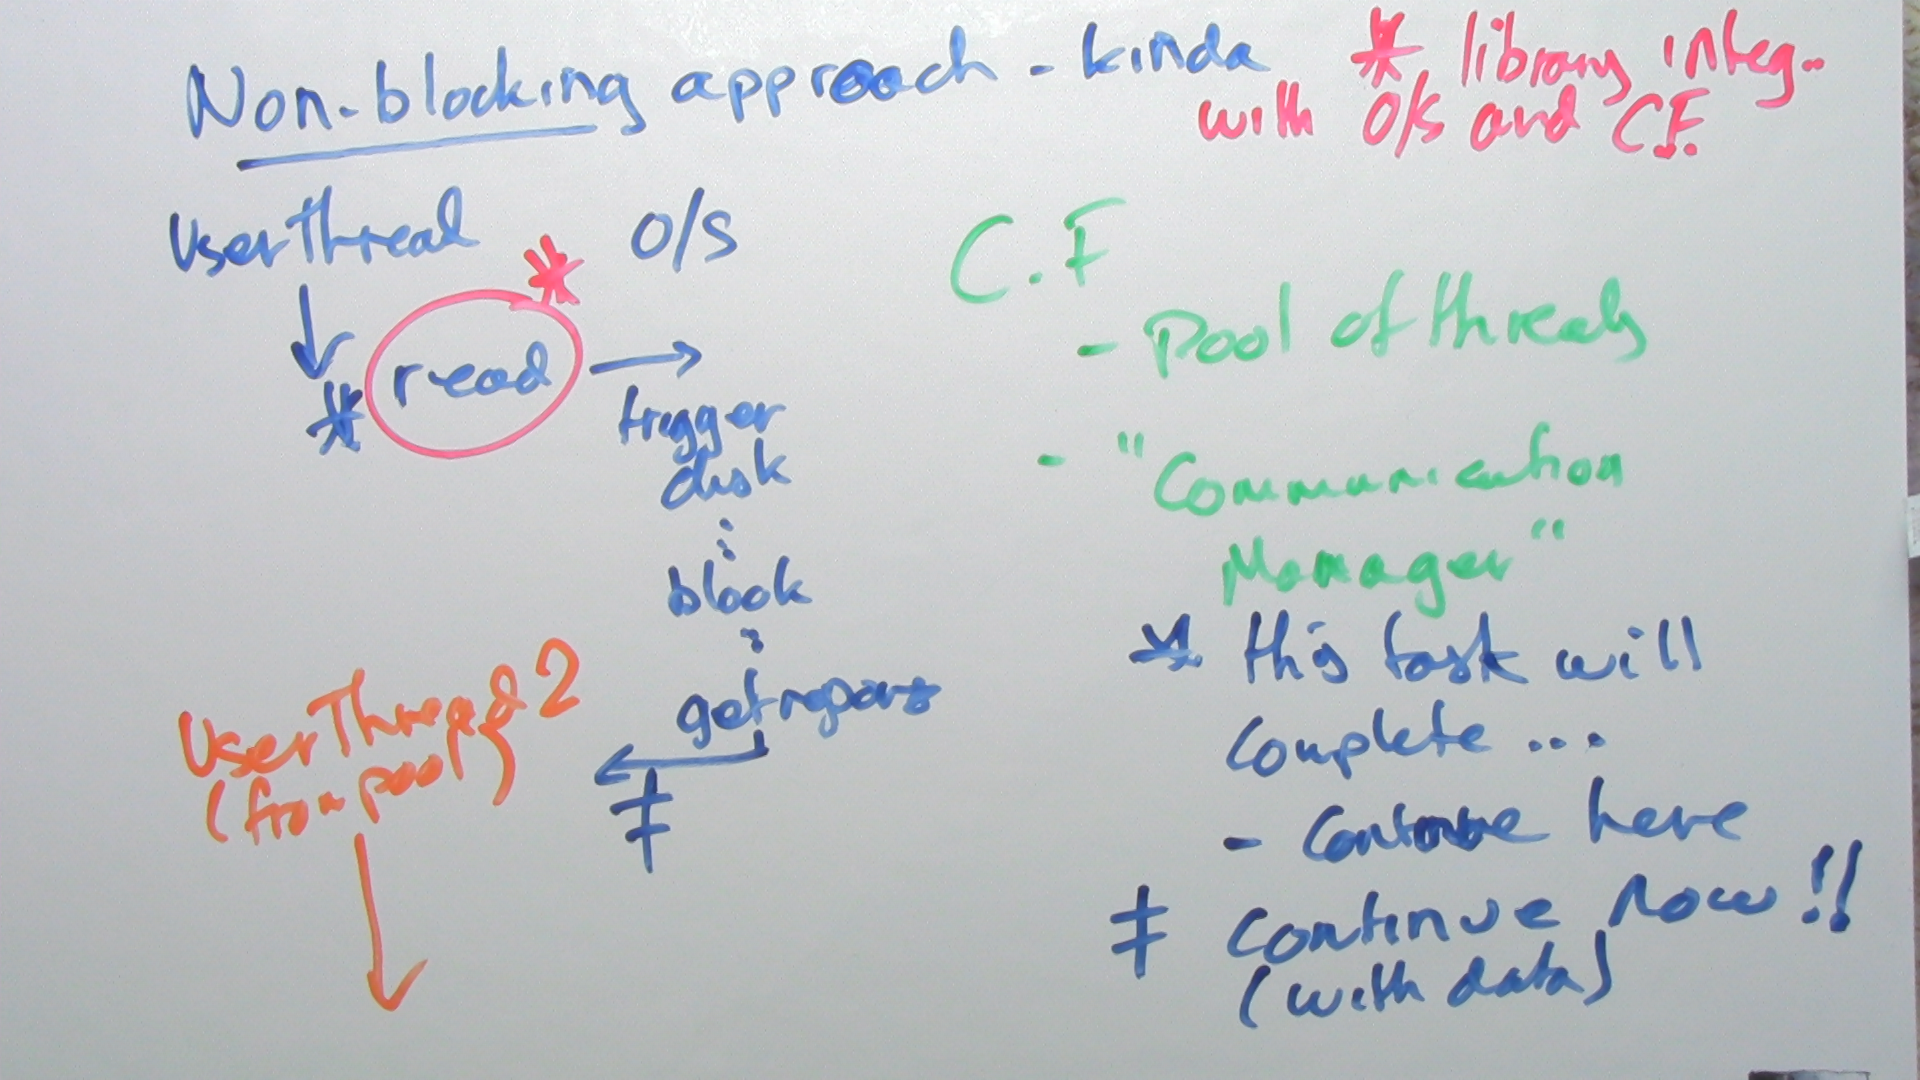 Non-blocking approach - kinda
* library integ.
with O/S and C.F.
User Thread
O/S
* read *
trigger
disk
block
get repons
User Thread 2
(from pool)
‡
C.F
- Pool of threads
- "Communication
Manager"
* this task will
complete ...
- Continue here
‡ Continue now!!
(with data)